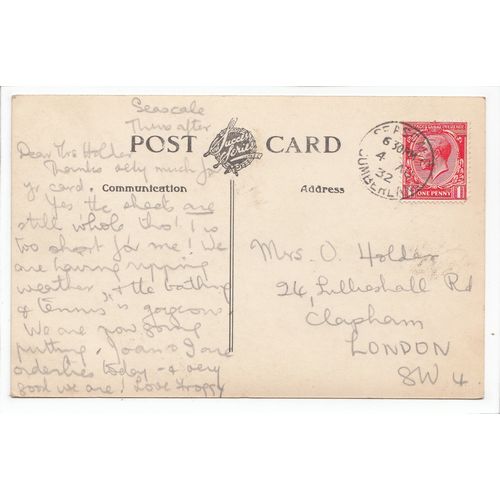 Seascale
Thurs after
POST CARD
Dear Mrs Holder
Thanks very much for
yr card.
Communication
Address
Yes the sheets are
still whole tho' 1 is
too short for me! We
are having ripping
weather, & the bathing
& tennis is gorgeous.
We are now going
putting. Joan & I are
orderlies today - & very
good we are! Love Froggy
Mrs. O. Holder
24, Lillieshall Rd
Clapham
LONDON
SW 4.
SEASCALE
6 30 PM
4 A
32
CUMBERLAND
ONE PENNY